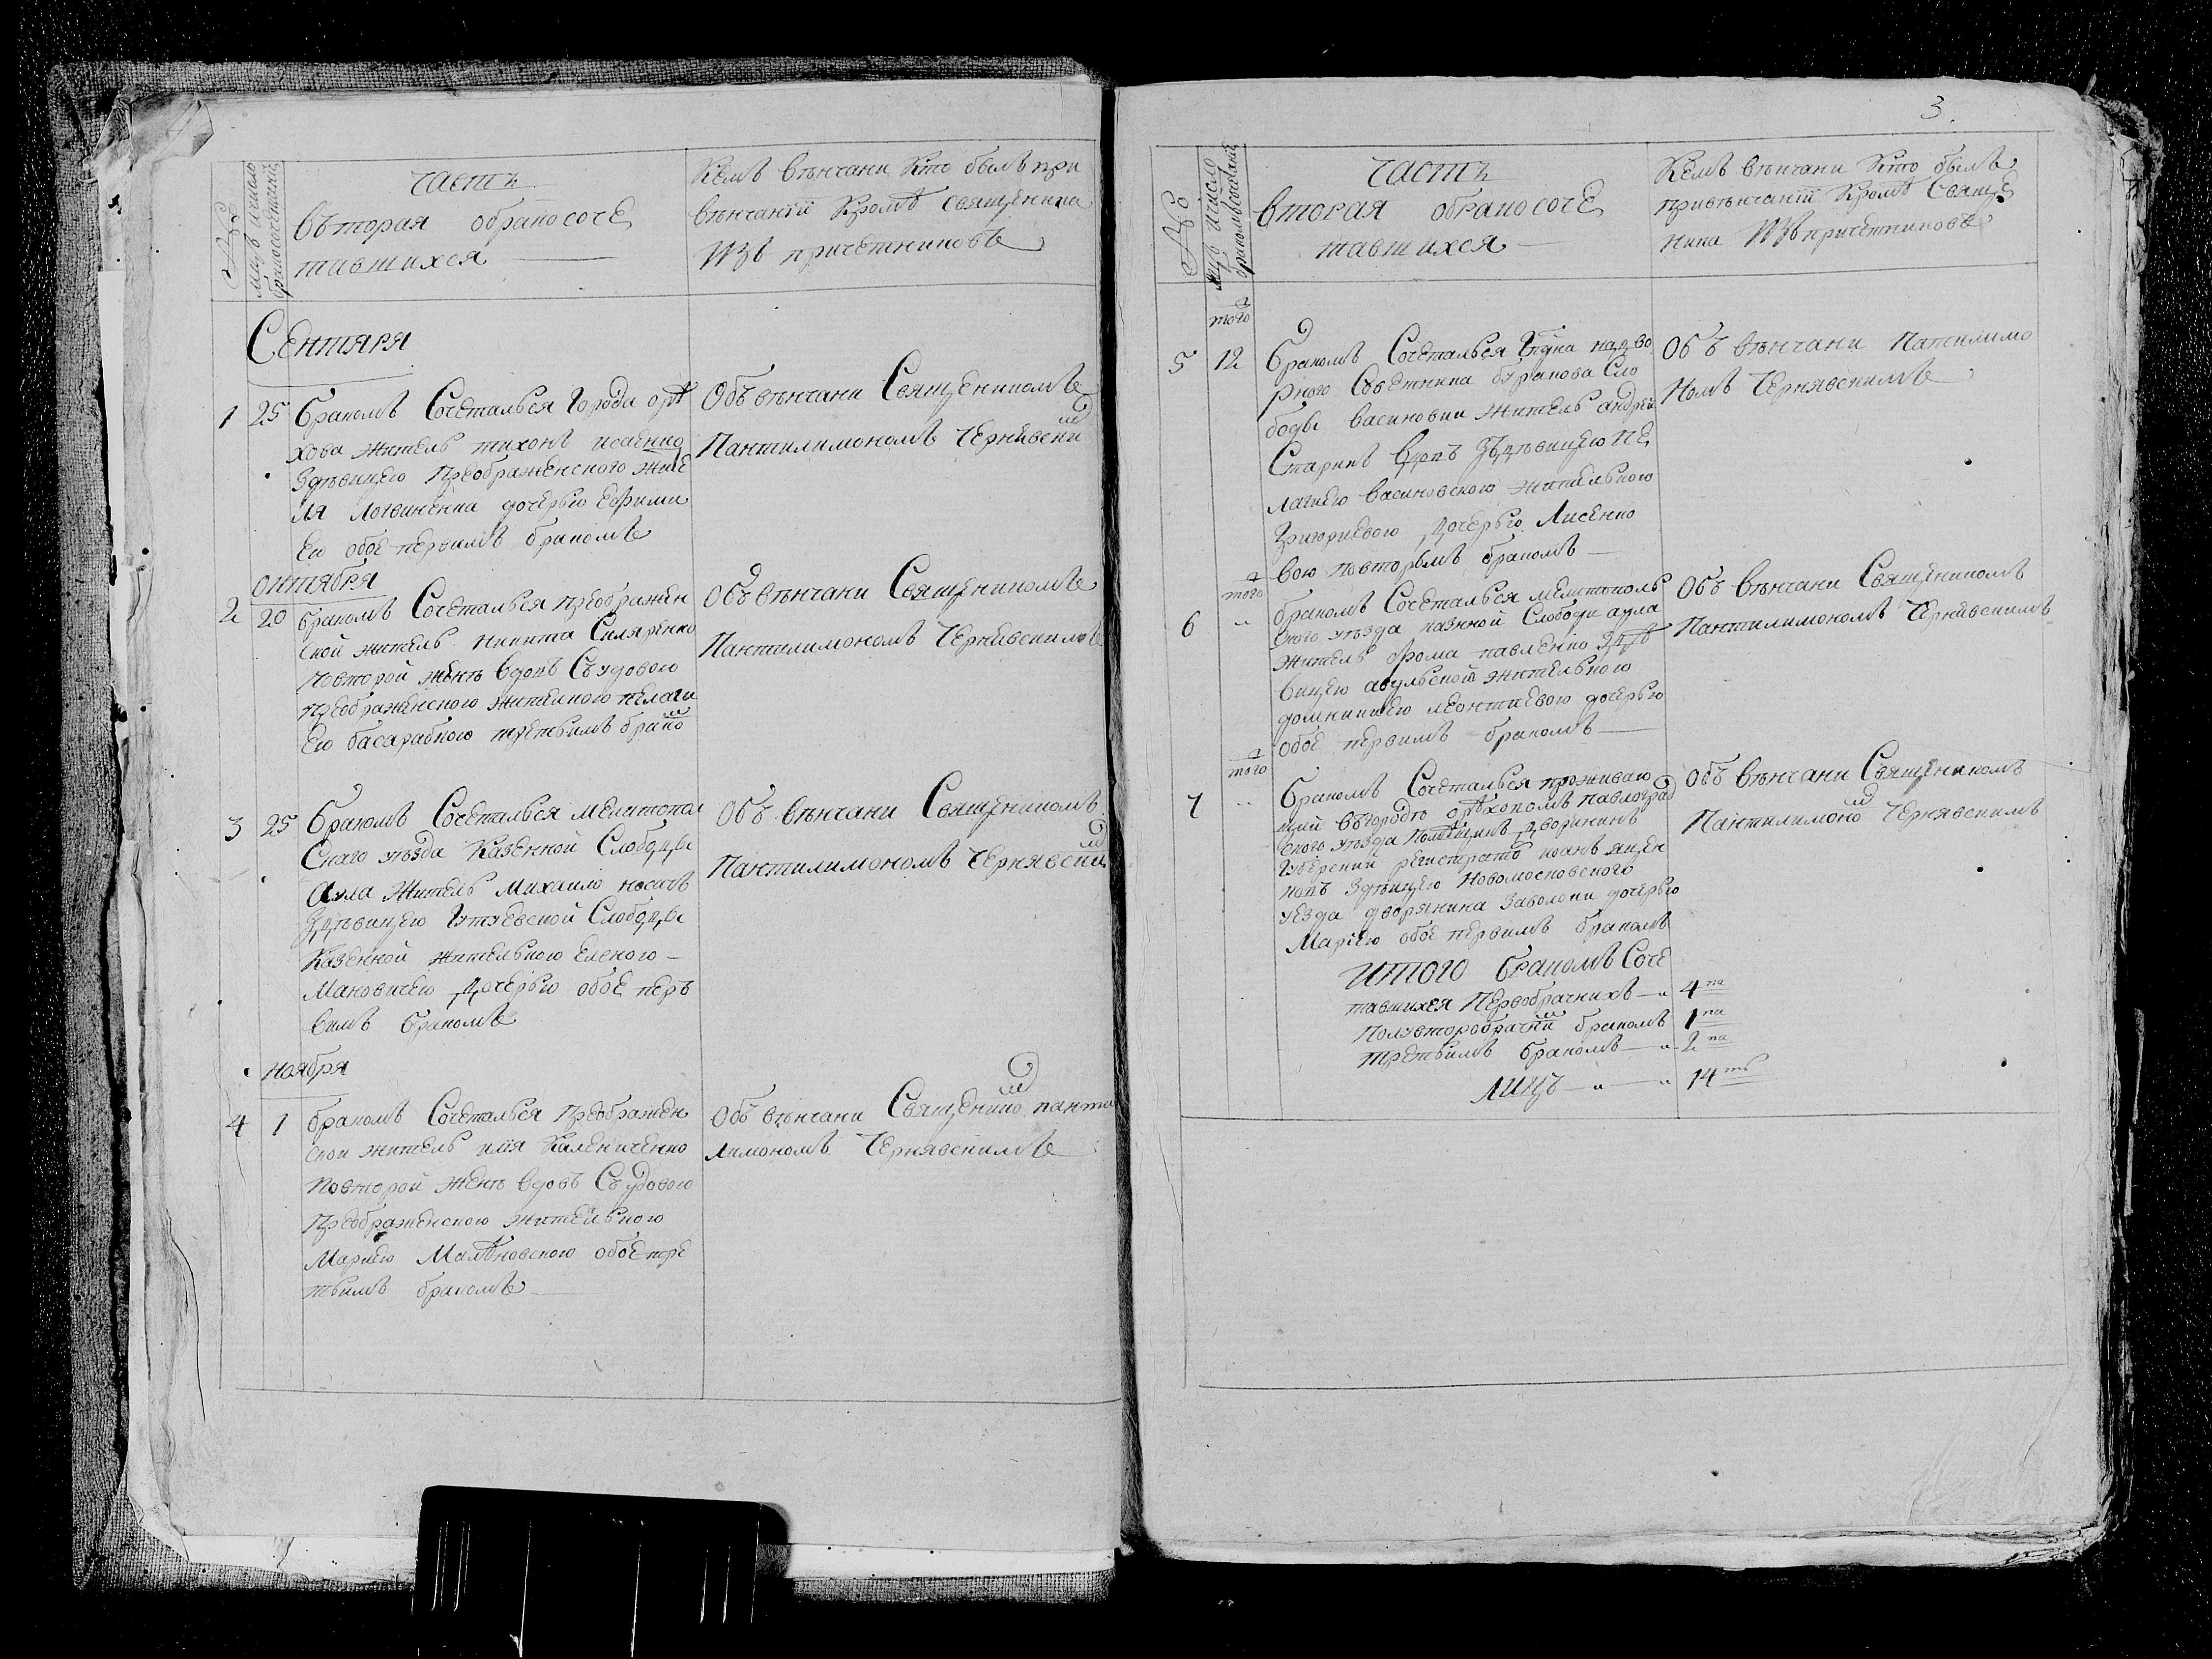 №
мцъ и число
бракосочетания
часть
въторая обракосоче
тавшихся
Кемъ вѣнчани Кто былъ при
вѣнчании Кромѣ священика
Изъ причетниковъ
Сентяря
1 25 бракомъ Сочетался Города орѣ
хова житель тихонъ исаенко
Здѣвицею Преображенского жите
ля логвиненка дочерью Ефими
ею обое первимъ бракомъ
Объ вѣнчани Священикомъ
Пантилимономъ Чернявски
октября
2 20 бракомъ Сочетался преображен
ской житель никита Скляренко
повторой женѣ вдовъ Съ удовою
преображенскою жителкою пелаги
ею басарабкою третьимъ брако
Объ вѣнчани Священикомъ
Пантилимономъ Чернявскимъ
3 25 бракомъ Сочетался мелитопол
Скаго уѣзда Казенной Слободы
Аула житель Михаило носачъ
Здѣвицею Гутуевской Слободы
Казенной жителкою еленою
Мановичею дочерью обое перъ
вимъ бракомъ
Объ вѣнчани Священикомъ
Пантилимономъ Чернявски
ноября
4 1 бракомъ Сочетался преображен
ский житель илія Калениченко
повторой женѣ вдовъ Съ удовою
преображенскою жителкою
Мариею Малѣновскою обое тре
тьимъ бракомъ
Объ вѣнчани Священико панти
лимономъ Чернявскимъ
3.
№
мцъ и число
бракосочетания
часть
вторая обракосоче
тавшихся
Кемъ вѣнчани Кто былъ
привѣнчании Кромѣ Свяще
ника Изъ причетниковъ
того
5 12 бракомъ Сочетался Гдна надво
рного Советника буракова Сло
боды васиновки житель андрей
Старикъ вдовъ Здѣвицею пе
лагиею васиновскою жителкою
Григориевою дочерью Лисенко
вою повторымъ бракомъ
Объ вѣнчани Патилимо
Номъ Чернявскимъ
того
6 " бракомъ Сочетался мелитополь
ского уѣзда казнной Слободи аула
житель фома павленко Здѣ
вицею аоульской жителкою
домникиею леонтиевою дочерью
обое первимъ бракомъ
Объ вѣнчани Священикомъ
Пантилимономъ Чернявскимъ
того
7 " бракомъ Сочетался проживаю
щий въгородѣ орѣхополъ павлоград
ского уѣзда помѣщикъ дворянинъ
Губерский регистрато иоанъ яцен
ковъ Здѣвицею Новомосковского
уезда дворянина Заволоки дочерью
Мариею обое первимъ бракомъ
Объ вѣнчани Священикомъ
Пантилимоно Чернявскимъ
итого бракомъ Соче
тавшихся Первобрачнихъ 4 ра
Полуторобрачни бракомъ 1 ра
третьимъ бракомъ 2 ра
лицъ 14 ть